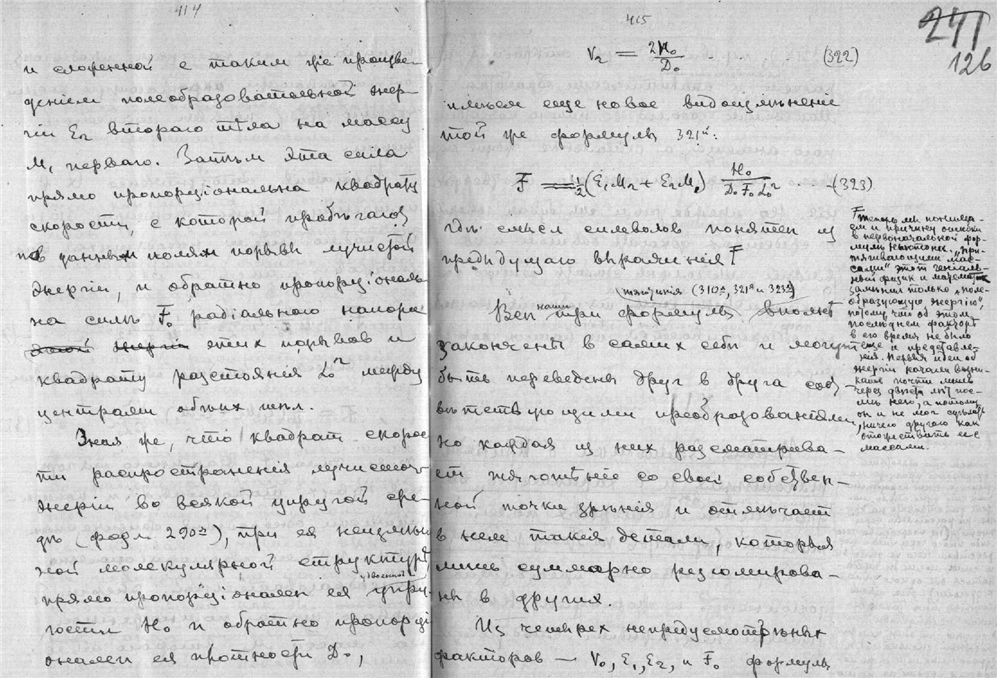 414
и сложенной с таким же произве-
деніем полеобразовательной энер-
гіи E₂ второго тѣла на массу
M, перваго. Затѣм эта сила
прямо пропорціональна квадрату
скорости, с которой пробѣгают
в данных полях порывы лучистой
энергіи, и обратно пропорціональ-
на силѣ F₀ радіального напора
этих порывов и
квадрату разстоянія L₀² между
центрами обоих тѣл.
Зная же, что квадрат скорос-
ти распространенія лучистой
энергіи во всякой упругой сре-
дѣ (форм 290ᵃ), при ея неизмѣн-
ной молекулярной структурѣ,
прямо пропорціонален ея удвоенной упру-
гости H₀ и обратно пропорці
онален ея плотности D₀,
415
241
126
V₂ = 2H₀ / D₀ . . . (322)
имѣем еще новое видоизмѣнение
той же формулы 321ᵃ:
F = ½ (E₁M₂ + E₂M₁) H₀ / D₀ F₀ L₀² (323)
гдѣ смысл символов понятен из
предыдущаго выраженія F
Всѣ наши три формулы тяготѣнія (310ᵃ, 321ᵃ и 323ᵃ) вполнѣ
закончены в самих себѣ и могут
быть переведены друг в друга соот-
вѣтствующими преобразованіями,
но каждая из них разсматрива-
ет тяготѣніе со своей собствен-
ной точки зрѣнія и отмѣчает
в нем такія детали, которыя
лишь суммарно резюмирова-
ны в других.
Из четырех непредусмотрѣнных
факторов — V₀, E₁, E₂, и F₀ формулы
Теперь мы понима-
ем и причину ошибки
в первоначальной фор-
мулѣ Ньютона. „При-
тягивающими мас-
сами" этот геніаль-
ный физик и математик
замѣнил только „поле-
образующую энергію",
потому что об этом
послѣднем факторѣ
в его время не было
еще и представле-
нія. Первыя идеи об
энергіи начали возни-
кать почти лишь
через двѣсти лѣт пос-
лѣ него, а потому
он и не мог сдѣлать
ничего другого как
отожествить ее с
массами.